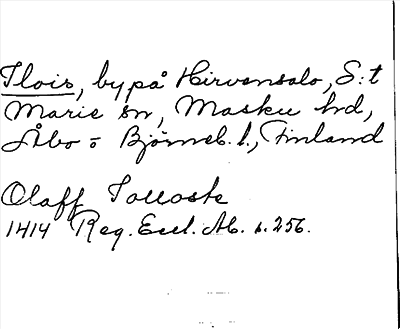 Ilois, by på Hirvensalo, S:t
Marie sn, Masku hrd,
Åbo o Björneb. l., Finland
Olaff Tolloste
1414 Reg. Eccl. Ab. s. 256.